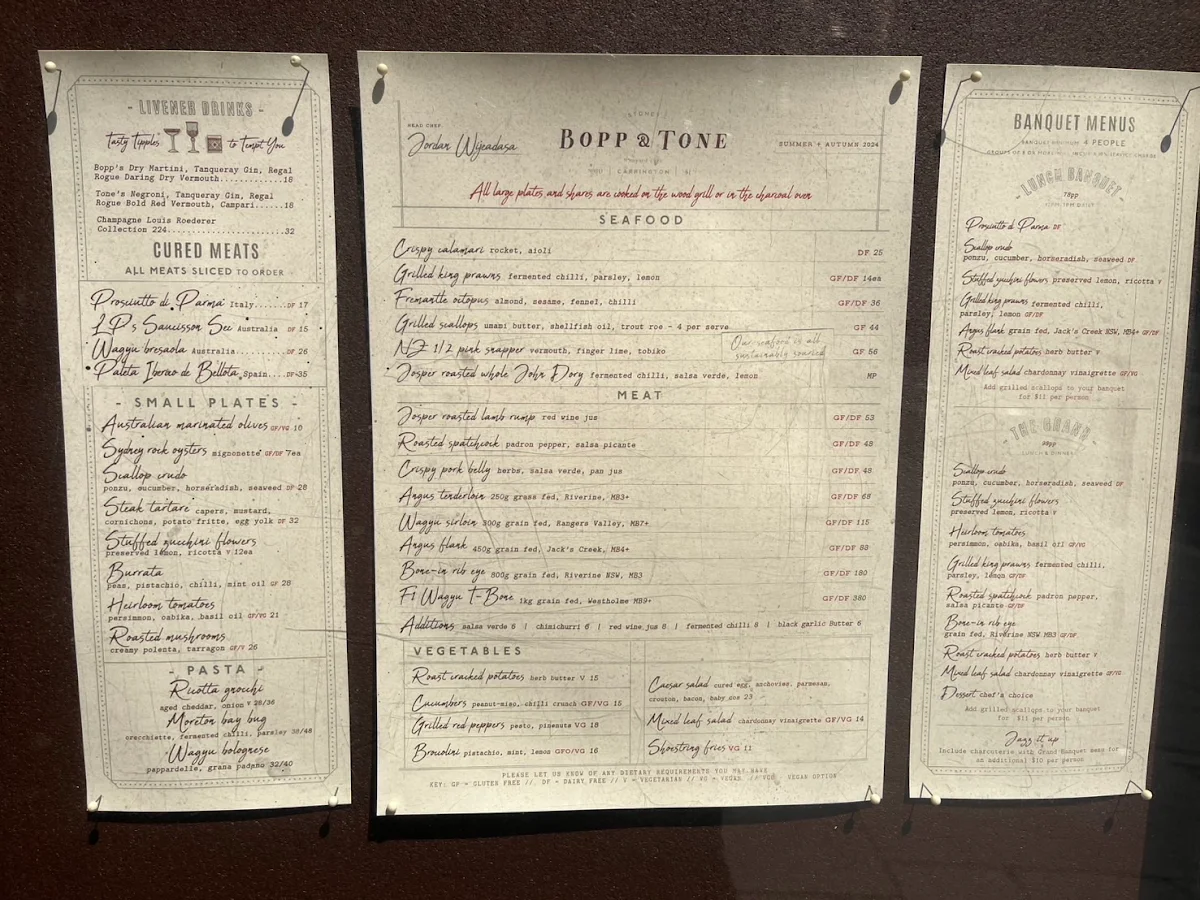 - LIVENER DRINKS -
Tasty Tipples to Tempt You
Bopp's Dry Martini, Tanqueray Gin, Regal
Rogue Daring Dry Vermouth...............18
Tone's Negroni, Tanqueray Gin, Regal
Rogue Bold Red Vermouth, Campari......18
Champagne Louis Roederer
Collection 224..........................32
CURED MEATS
ALL MEATS SLICED TO ORDER
Prosciutto di Parma Italy.......DF 17
LP's Saucisson Sec Australia DF 15
Wagyu bresaola Australia..........DF 26
Paleta Iberico de Bellota Spain....DF 35
- SMALL PLATES -
Australian marinated olives GF/VG 10
Sydney rock oysters mignonette GF/DF 7ea
Scallop crudo
ponzu, cucumber, horseradish, seaweed DF 28
Steak tartare capers, mustard,
cornichons, potato fritte, egg yolk DF 32
Stuffed zucchini flowers
preserved lemon, ricotta V 12ea
Burrata
peas, pistachio, chilli, mint oil GF 28
Heirloom tomatoes
persimmon, oabika, basil oil GF/VG 21
Roasted mushrooms
creamy polenta, tarragon GF/V 26
- PASTA -
Ricotta gnocchi
aged cheddar, onion V 28/36
Moreton bay bug
orecchiette, fermented chilli, parsley 38/48
Wagyu bolognese
pappardelle, grana padano 32/40
HEAD CHEF
Jordan Wijeadasa
SYDNEY
BOPP & TONE
SUMMER + AUTUMN 2024
CARRINGTON
All large plates and shares are cooked on the wood grill or in the charcoal oven
SEAFOOD
Crispy calamari rocket, aioli DF 25
Grilled king prawns fermented chilli, parsley, lemon GF/DF 14ea
Fremantle octopus almond, sesame, fennel, chilli GF/DF 36
Grilled scallops umami butter, shellfish oil, trout roe - 4 per serve GF 44
NZ 1/2 pink snapper vermouth, finger lime, tobiko GF 56
Our seafood is all
sustainably sourced
Josper roasted whole John Dory fermented chilli, salsa verde, lemon MP
MEAT
Josper roasted lamb rump red wine jus GF/DF 53
Roasted spatchcock padron pepper, salsa picante GF/DF 48
Crispy pork belly herbs, salsa verde, pan jus GF/DF 49
Angus tenderloin 250g grass fed, Riverine, MB3+ GF/DF 68
Wagyu sirloin 300g grain fed, Rangers Valley, MB7+ GF/DF 115
Angus flank 450g grain fed, Jack's Creek, MB4+ GF/DF 88
Bone-in rib eye 800g grain fed, Riverine NSW, MB3 GF/DF 180
F1 Wagyu T-Bone 1kg grain fed, Westholme MB9+ GF/DF 380
Additions salsa verde 6 | chimichurri 6 | red wine jus 8 | fermented chilli 8 | black garlic Butter 6
VEGETABLES
Roast cracked potatoes herb butter V 15
Cucumbers peanut-miso, chilli crunch GF/VG 15
Grilled red peppers pesto, pinenuts VG 18
Broccolini pistachio, mint, lemon GFO/VG 16
Caesar salad cured egg, anchovies, parmesan,
crouton, bacon, baby cos 23
Mixed leaf salad chardonnay vinaigrette GF/VG 14
Shoestring fries VG 11
PLEASE LET US KNOW OF ANY DIETARY REQUIREMENTS YOU MAY HAVE
KEY: GF = GLUTEN FREE // DF = DAIRY FREE // V = VEGETARIAN // VG = VEGAN // VGO VEGAN OPTION
BANQUET MENUS
BANQUET MINIMUM 4 PEOPLE
- LUNCH BANQUET -
78pp
Prosciutto di Parma DF
Scallop crudo
ponzu, cucumber, horseradish, seaweed DF
Stuffed zucchini flowers preserved lemon, ricotta V
Grilled king prawns fermented chilli,
parsley, lemon GF/DF
Angus flank grain fed, Jack's Creek NSW, MB4+ GF/DF
Roast cracked potatoes herb butter V
Mixed leaf salad chardonnay vinaigrette GF/VG
Add grilled scallops to your banquet
for $11 per person
- THE GRAND -
LUNCH & DINNER
Scallop crudo
ponzu, cucumber, horseradish, seaweed DF
Stuffed zucchini flowers
preserved lemon, ricotta V
Heirloom tomatoes
persimmon, oabika, basil oil GF/VG
Grilled king prawns fermented chilli,
parsley, lemon GF/DF
Roasted spatchcock padron pepper,
salsa picante GF/DF
Bone-in rib eye
grain fed, Riverine NSW MB3 GF/DF
Roast cracked potatoes herb butter V
Mixed leaf salad chardonnay vinaigrette GF/VG
Dessert chef's choice
Add grilled scallops to your banquet
for $11 per person
Jazz it up
Include charcuterie with Grand Banquet menu for
an additional $10 per person